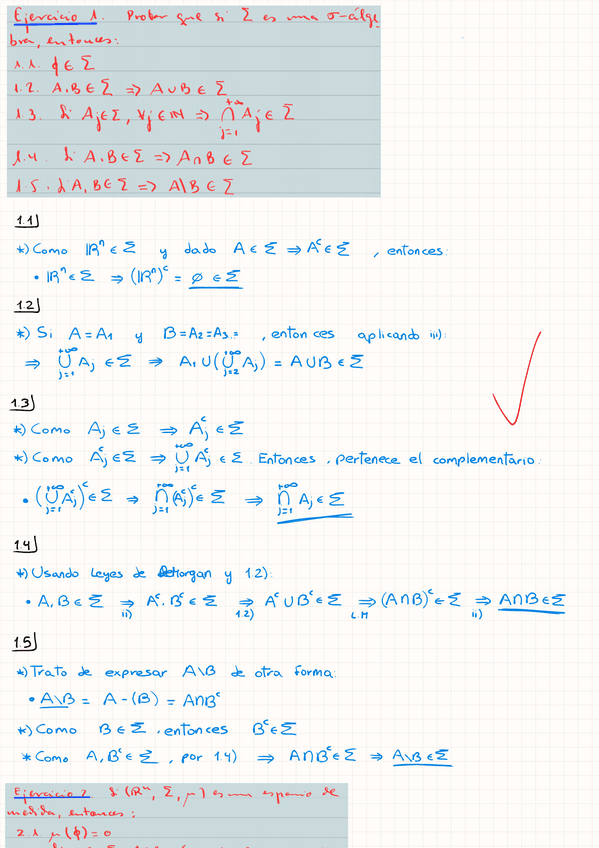 Ejercicio 1. Probar que si Σ es una σ-álge
bra, entonces:
1.1. ϕ ∈ Σ
1.2. A,B ∈ Σ => A∪B ∈ Σ
1.3. Si Aj ∈ Σ, ∀j ∈ ℕ => ⋂_{j=1}^{+∞} Aj ∈ Σ
1.4. Si A,B ∈ Σ => A∩B ∈ Σ
1.5. Si A,B ∈ Σ => A\B ∈ Σ
1.1)
*) Como ℝⁿ ∈ Σ y dado A ∈ Σ ⇒ Aᶜ ∈ Σ , entonces:
• ℝⁿ ∈ Σ ⇒ (ℝⁿ)ᶜ = ∅ ∈ Σ
1.2)
*) Si A = A₁ y B = A₂ = A₃ = , entonces aplicando iii):
⇒ ⋃_{j=1}^{+∞} Aj ∈ Σ ⇒ A₁ ∪ (⋃_{j=2}^{+∞} Aj) = A∪B ∈ Σ
1.3)
*) Como Aj ∈ Σ ⇒ Ajᶜ ∈ Σ
*) Como Ajᶜ ∈ Σ ⇒ ⋃_{j=1}^{+∞} Ajᶜ ∈ Σ. Entonces, pertenece el complementario:
• (⋃_{j=1}^{+∞} Ajᶜ)ᶜ ∈ Σ ⇒ ⋂_{j=1}^{+∞} (Ajᶜ)ᶜ ∈ Σ ⇒ ⋂_{j=1}^{+∞} Aj ∈ Σ
1.4)
*) Usando Leyes de Morgan y 1.2):
• A, B ∈ Σ ⇒_{ii)} Aᶜ, Bᶜ ∈ Σ ⇒_{1.2)} Aᶜ ∪ Bᶜ ∈ Σ ⇒_{L.M} (A∩B)ᶜ ∈ Σ ⇒_{ii)} A∩B ∈ Σ
1.5)
*) Trato de expresar A\B de otra forma:
• A\B = A-(B) = A∩Bᶜ
*) Como B ∈ Σ, entonces Bᶜ ∈ Σ
* Como A, Bᶜ ∈ Σ, por 1.4) ⇒ A∩Bᶜ ∈ Σ ⇒ A\B ∈ Σ
Ejercicio 2. Si (ℝⁿ, Σ, μ) es un espacio de
medida, entonces:
2.1 μ(ϕ) = 0